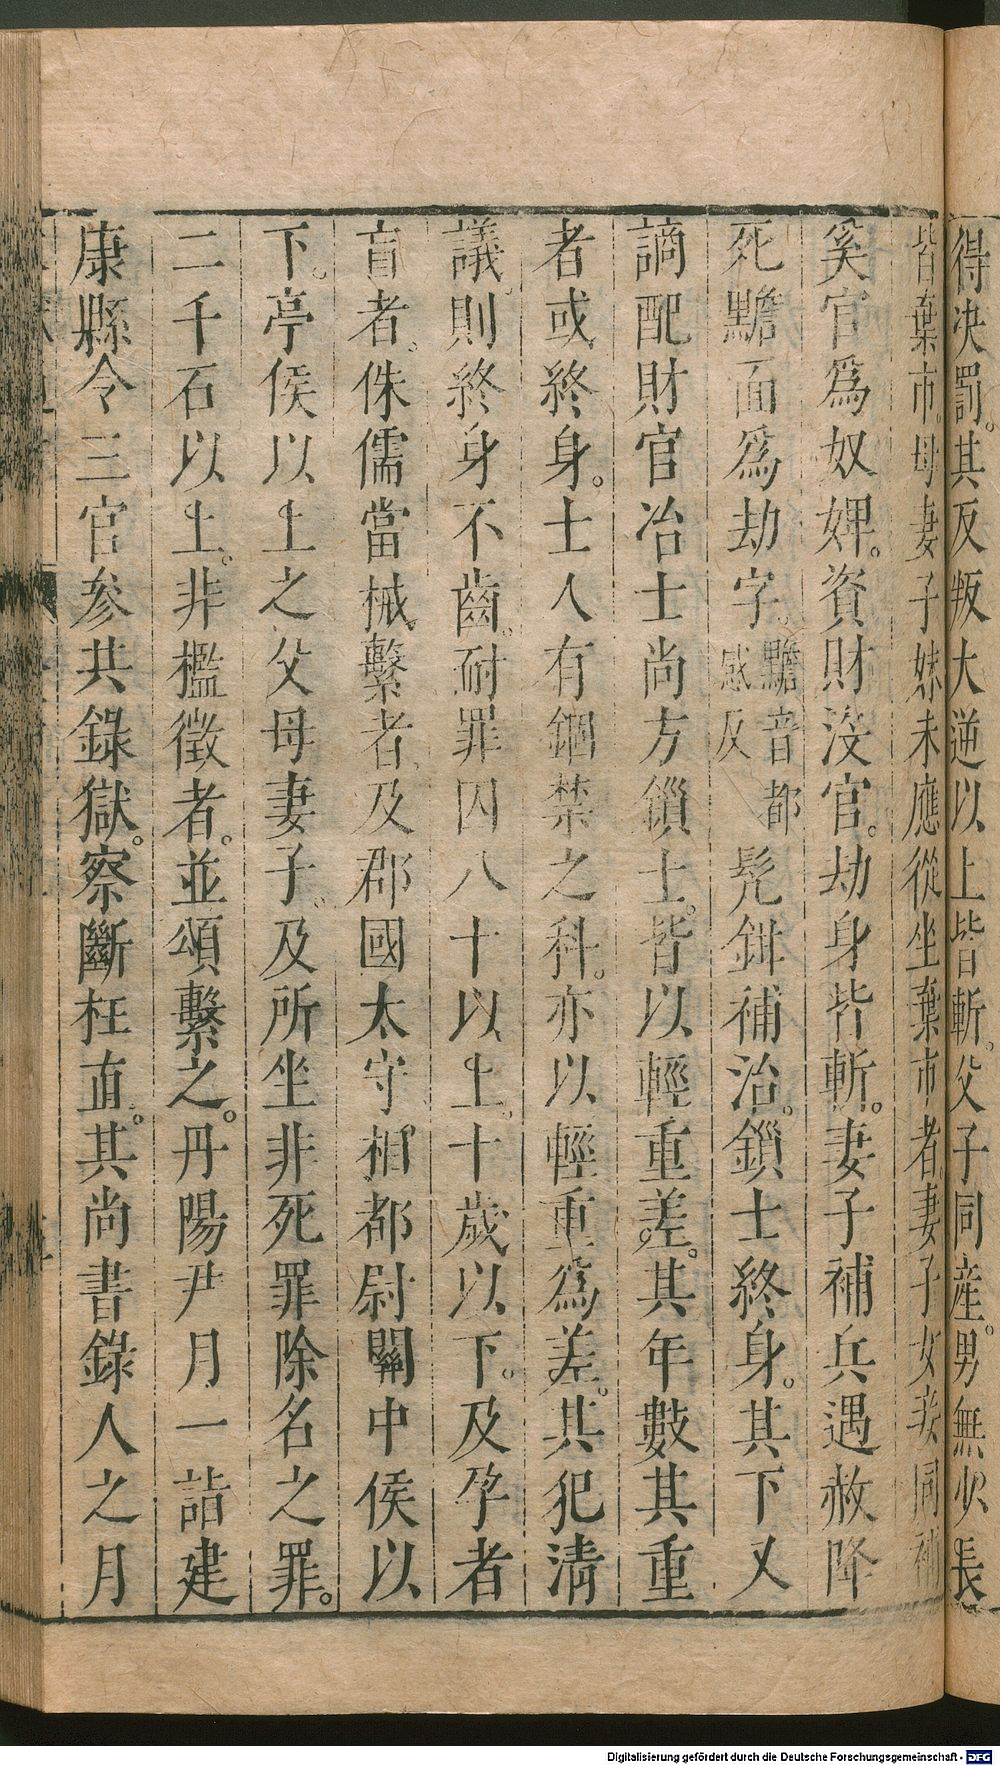 得决罰其反叛大逆以上皆斬父子同産男無少長
皆棄市母妻子妹未應從坐棄市者妻子女妾同補
奚官爲奴婢資財没官劫身皆斬妻子補兵遇赦降
死黵面爲劫字黵音都感反髡鉗補治鎻士終身其下又
謫配財官冶士尚方鎻士皆以輕重差其年數其重
者或終身士人有錮禁之科亦以輕重爲差其犯淸
議則終身不齒耐罪囚八十以上十歲以下及孕者
盲者侏儒當械繫者及郡國太守相都尉關中侯以
下亭侯以上之父母妻子及所坐非死罪除名之罪
二千石以上非檻徵者並頌繫之丹陽尹月一詣建
康縣令三官參共錄獄察斷枉直其尚書錄人之月
Digitalisierung gefördert durch die Deutsche Forschungsgemeinschaft - DFG